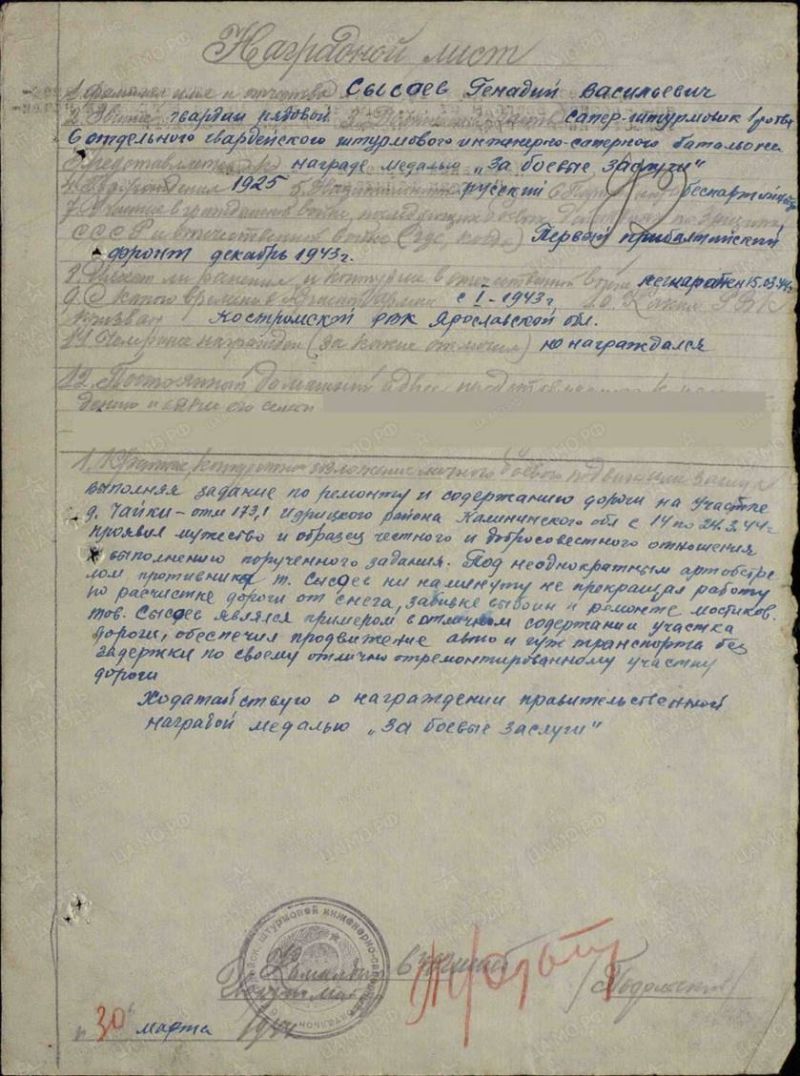 Наградной лист
1 Фамилия имя и отчество Сысоев Генадий Васильевич
2 Звание гвардии рядовой 3 Должность часть сапер-штурмовик 1 роты
6 отдельного гвардейского штурмового инженерно-саперного батальона
Представляется к награде медалью „За боевые заслуги"
4 Год рождения 1925 5 русский 6 беспартийный
7 Участие в гражданской войне, последующих боевых действиях по защите
СССР и отечественной войне (где, когда) Первый прибалтийский
фронт декабрь 1943 г.
8. Имеет ли ранения и контузии в отечественной войне 15.03.44г
9. С какого времени в Красной Армии с I-1943 г 10. Каким РВК
призван Костромской рвк Ярославской обл.
11 Чем ранее награжден (за какие отличия) не награждался
12. Постоянный домашний адрес представляемого к
дению и адрес его семьи
1. Краткое конкретное изложение личного боевого подвига или заслуг
Выполняя задание по ремонту и содержанию дороги на участке
д. Чайки - отм 173,1 Идрицкого района Калининского обл с 14 по 24.3.44 г
проявил мужество и образец честного и добросовестного отношения
к выполнению порученного задания. Под неоднократным артобстре
лом противника т. Сысоев ни на минуту не прекращал работу
по расчистке дороги от снега, забивке выбоин и ремонте мостиков.
тов. Сысоев являлся примером в отличном содержании участка
дороги, обеспечил продвижение авто и гуж транспорта без
задержки по своему отлично отремонтированному участку
дороги
Ходатайствую о награждении правительственной
наградой медалью „За боевые заслуги"
штурмовой инженерно-саперный
Командир
Гвардии майор
30 марта 1944
ЦАМО.РФ